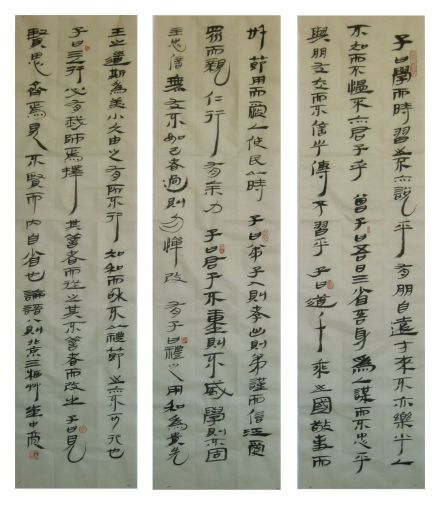 子曰學而時習之不亦說乎有朋自遠方來不亦樂乎人
不知而不慍不亦君子乎 曾子曰吾日三省吾身為人謀而不忠乎
與朋友交而不信乎傳不習乎 子曰道千乘之國敬事而
節用而愛人使民以時 子曰弟子入則孝出則弟謹而信汎愛
眾而親仁行有余力 子曰君子不重則不威學則不固
主忠信無友不如己者過則勿憚改 有子曰禮之用和為貴先
王之道斯為美小大由之有所不行知和而和不以禮節之亦不可行也
子曰三行必有我師焉擇其善者而從之其不善者而改之 子曰見
賢思齊焉見不賢而內自省也 論語八則北京